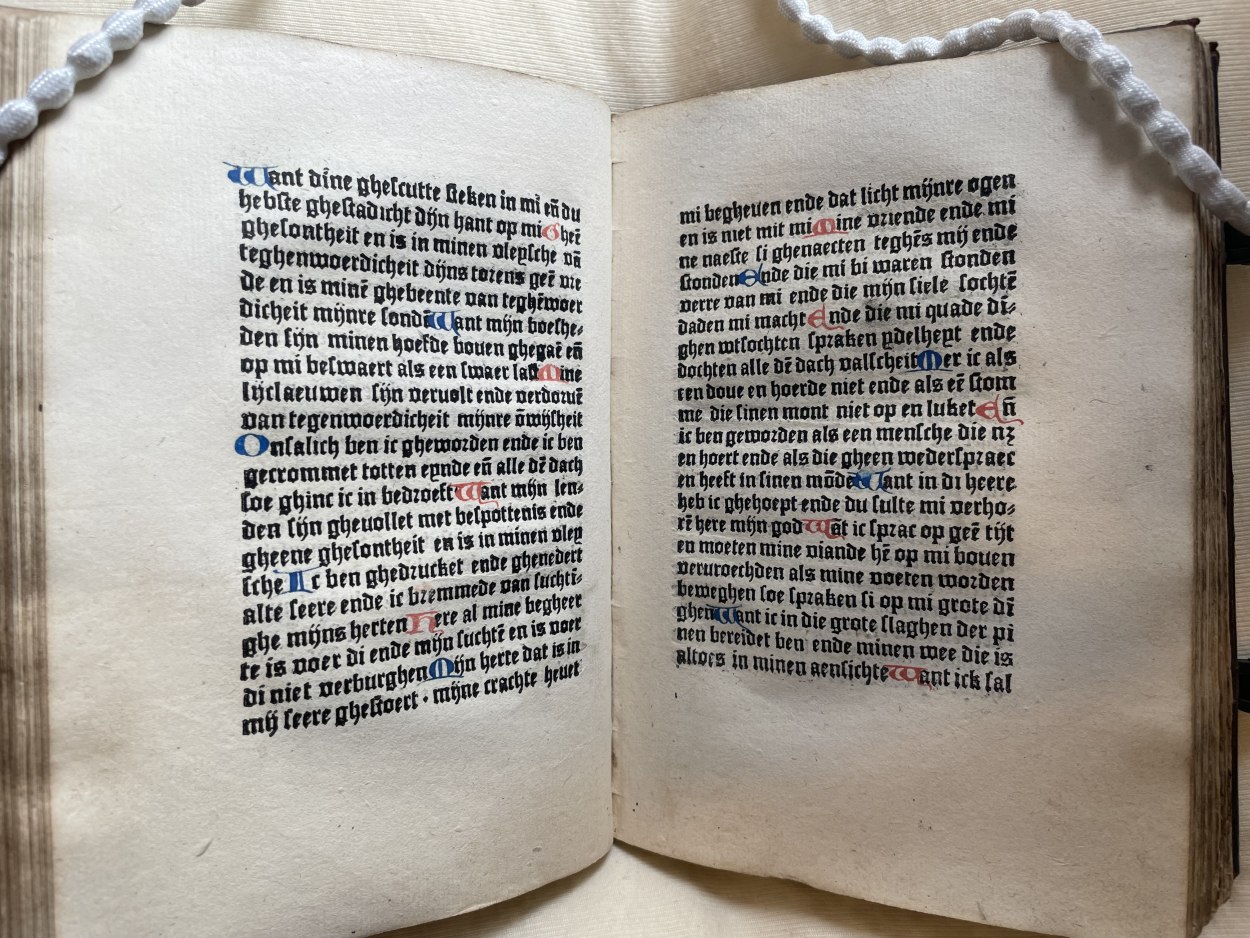 Want dīne ghescutte steken in mi eñ du
hebste ghestadicht dijn hant op mi Gheē
ghesontheit en is in minen vleysche vā
teghenwoerdicheit dijns torens geē vre
de en is minē ghebeente van teghēwoer
dicheit mijnre sondē Want mijn boeshe-
den sijn minen hoefde bouen ghegaē eñ
op mi beswaert als een swaer last Mine
lijclaeuwen sijn veruolt ende verdoruē
van tegenwoerdicheit mijnre ōwijsheit
Onsalich ben ic gheworden ende ic ben
gecrommet totten eynde eñ alle dē dach
soe ghinc ic in bedroeft Want mijn len-
den sijn gheuollet met bespottenis ende
gheene ghesontheit en is in minen vley
sche Ic ben ghedrucket ende ghenedert
alte seere ende ic bremmede van suchtī-
ghe mijns herten Here al mine begheer
te is voer di ende mijn suchtē en is voer
di niet verburghen Mijn herte dat is in
mij seere ghestoert · mijne crachte heuet
mi begheuen ende dat licht mijnre ogen
en is niet mit mi Mine vriende ende mi
ne naeste si ghenaecten teghēs mij ende
stonden Ende die mi bi waren stonden
verre van mi ende die mijn siele sochtē
daden mi macht Ende die mi quade dī-
ghen wtsochten spraken ydelheyt ende
dochten alle dē dach valscheit Mer ic als
een doue en hoerde niet ende als eē stom
me die sinen mont niet op en luket Eñ
ic ben geworden als een mensche die nz
en hoert ende als die gheen wederspraec
en heeft in sinen mōde Want in di heere
heb ic ghehoept ende du sulte mi verho-
rē here mijn god Wāt ic sprac op geē tijt
en moeten mine viande hē op mi bouen
veruroechden als mine voeten worden
beweghen soe spraken si op mi grote dī
ghen Want ic in die grote slaghen der pi
nen bereidet ben ende minen wee die is
altoes in minen aensichte Want ick sal